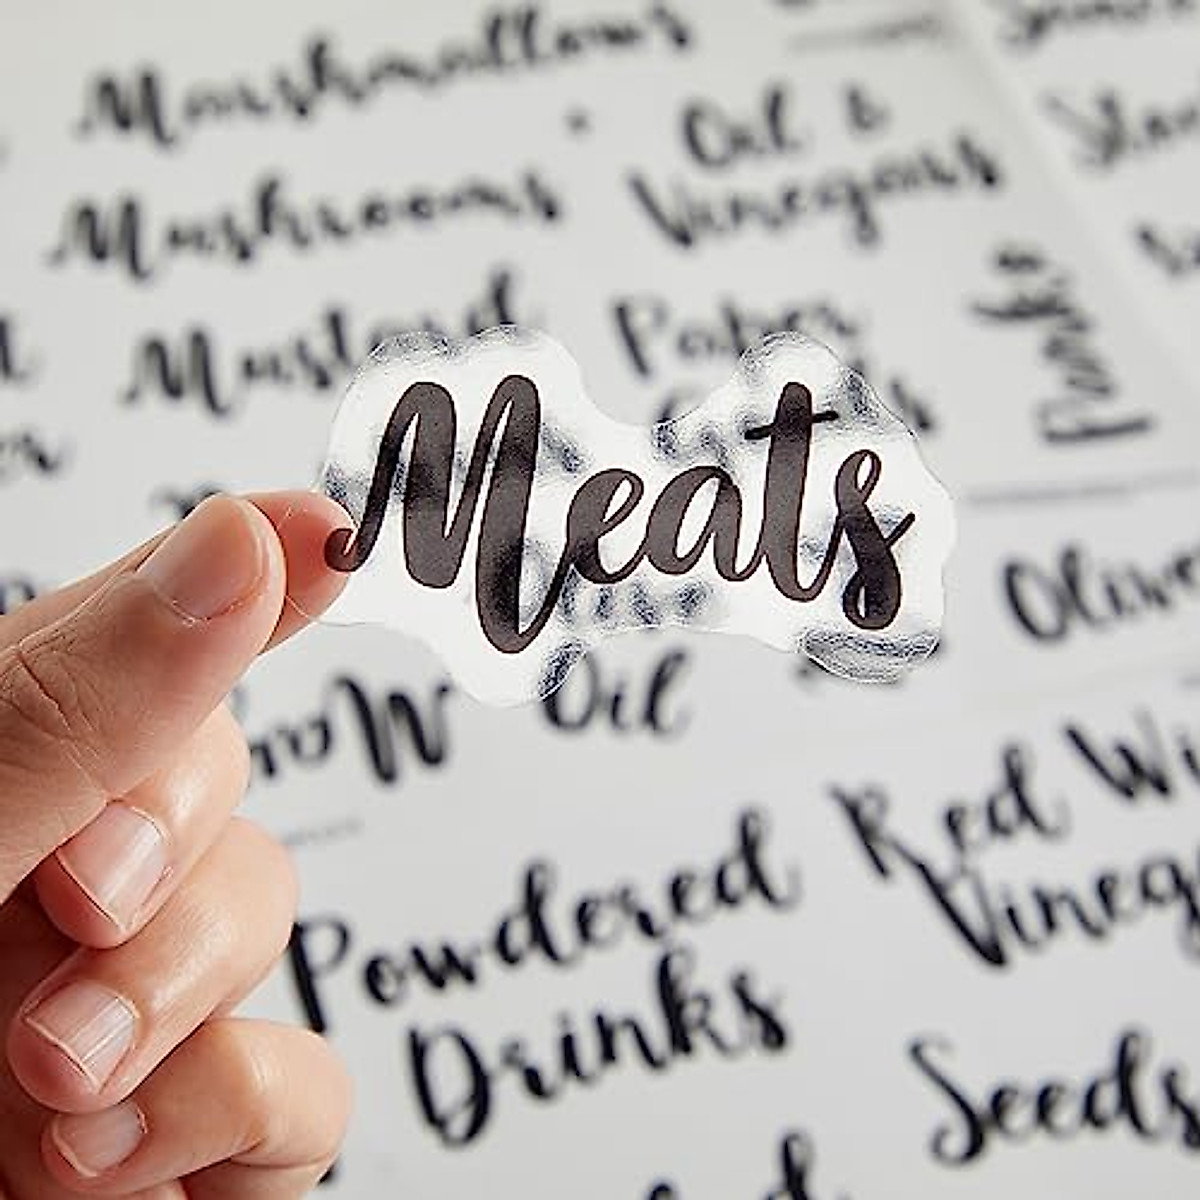 Marshmallows
Mushrooms
Mustard
Oil &
Vinegars
Paper
Meats
Oil
Powdered
Drinks
Red Wi
Vineg
Olive
Seeds